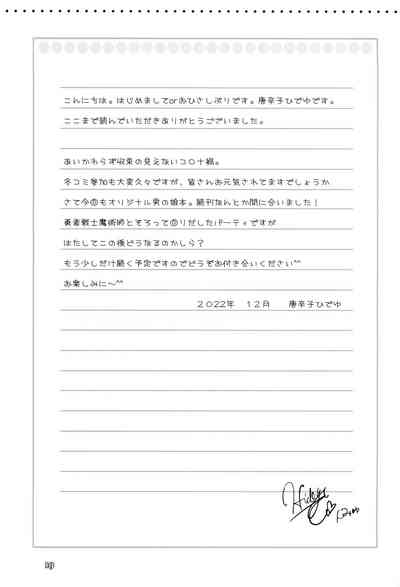 こんにちは。はじめましてorおひさしぶりです。唐辛子ひでゆです。
ここまで読んでいただきありがとうございました。
あいかわらず収束の見えないコロナ禍。
冬コミ参加も大変久々ですが、皆さんお元気されてますでしょうか
さて今回もオリジナル男の娘本。続刊なんとか間に合いました！
勇者戦士魔術師とそろって回りだしたパーティですが
はたしてこの後どうなるのかしら？
もう少しだけ続く予定ですのでどうぞお付き合いください^^
お楽しみに～^^
2022年　12月　　唐辛子ひでゆ
Hideyu